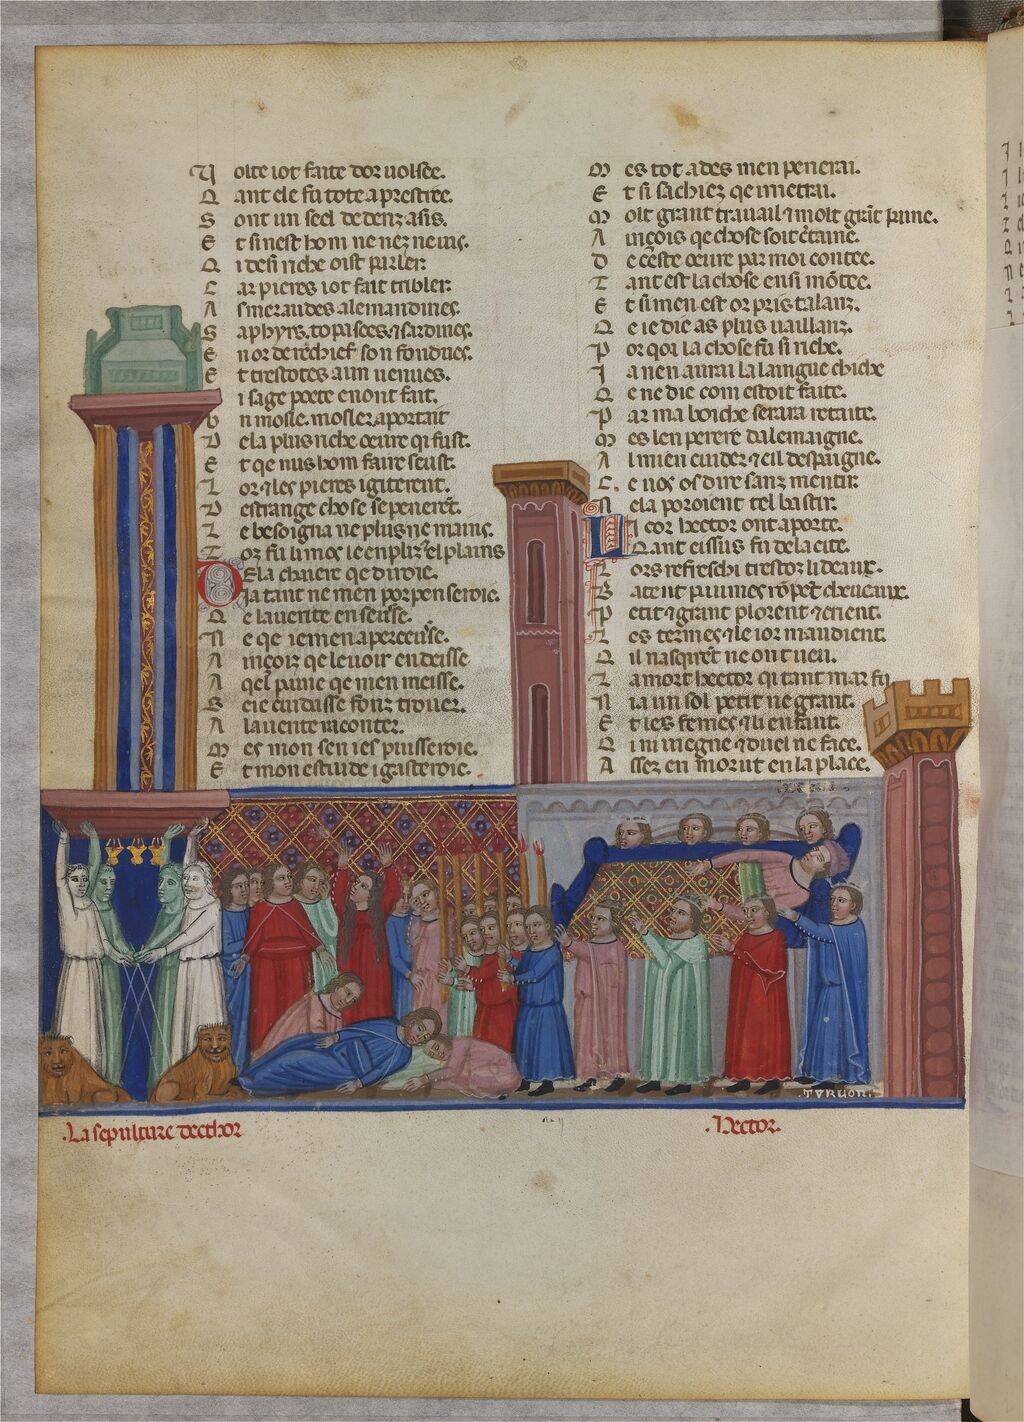 Volte iot faite dor uolsee.
Qant ele fu tote aprestee.
Sont un seel dedenz asis.
Et si nest hom ne nez ne uis.
Qi desi riche oist parler.
Car pieres iot fait tribler.
Asmeraudes alemandines.
Saphyrs. topasces. ⁊ sardines.
En or derechief son fondues.
Et trestotes a un uenues.
i sage poete enont fait.
Un mosle. mosler aportait
De la plus riche oeure qi fust.
Et qe nus hom faire seust.
Lor ⁊ les pieres igiterent.
Destrange chose se penerent.
Le besoigna ne plus ne mains.
Tor fu li mosles e enpliz ⁊ el plains
De la chaiere qe diroie.
Ia tant ne men porpenseroie.
Qe lauerite en seusse.
Ne qe ie men aperceusse.
Ainçois qe le uoir en deisse
A qel paine qe men meisse.
Se ie cuidasse fons trouer.
A lauerite raconter.
Mes mon sen i espuisseroie.
Et mon estuide i gasteroie.
Mes tot ades men penerai.
Et si sachiez qe i metrai.
Molt grant trauail ⁊ molt grant paine.
Ainçois qe chose soit certaine.
De ceste oeure par moi contee.
Tant est la chose ensi montee.
Et si men est or pris talanz.
Qe ie die as plus uaillanz.
Por qoi la chose fu si riche.
Ia nen aurai la laingue chiche
Qe ne die com estoit faite.
Par ma boiche serara retraite.
Mes len perere dalemaigne.
Al mien cuider ⁊ cil despaigne.
Ce uos os dire sanz mentir
Nela poroient tel bastir.
Li cor hector ont aporte.
Qant eissus fu de la cite.
Lors refreschi trestoz li deaux.
Batent paumes rompent cheueaux.
Petit ⁊ grant plorent ⁊ crient.
Les termes ⁊ le ior maudient.
Qil nasqirent ne ont ueu.
La mort hector qi tant mar fu
Nia un sol petit ne grant.
Et les femes ⁊ li enfant.
Qi ni meigne ⁊ duel ne face.
Assez en morut en la place.
.TVRUON.
.La sepulture decthor
.Hector.